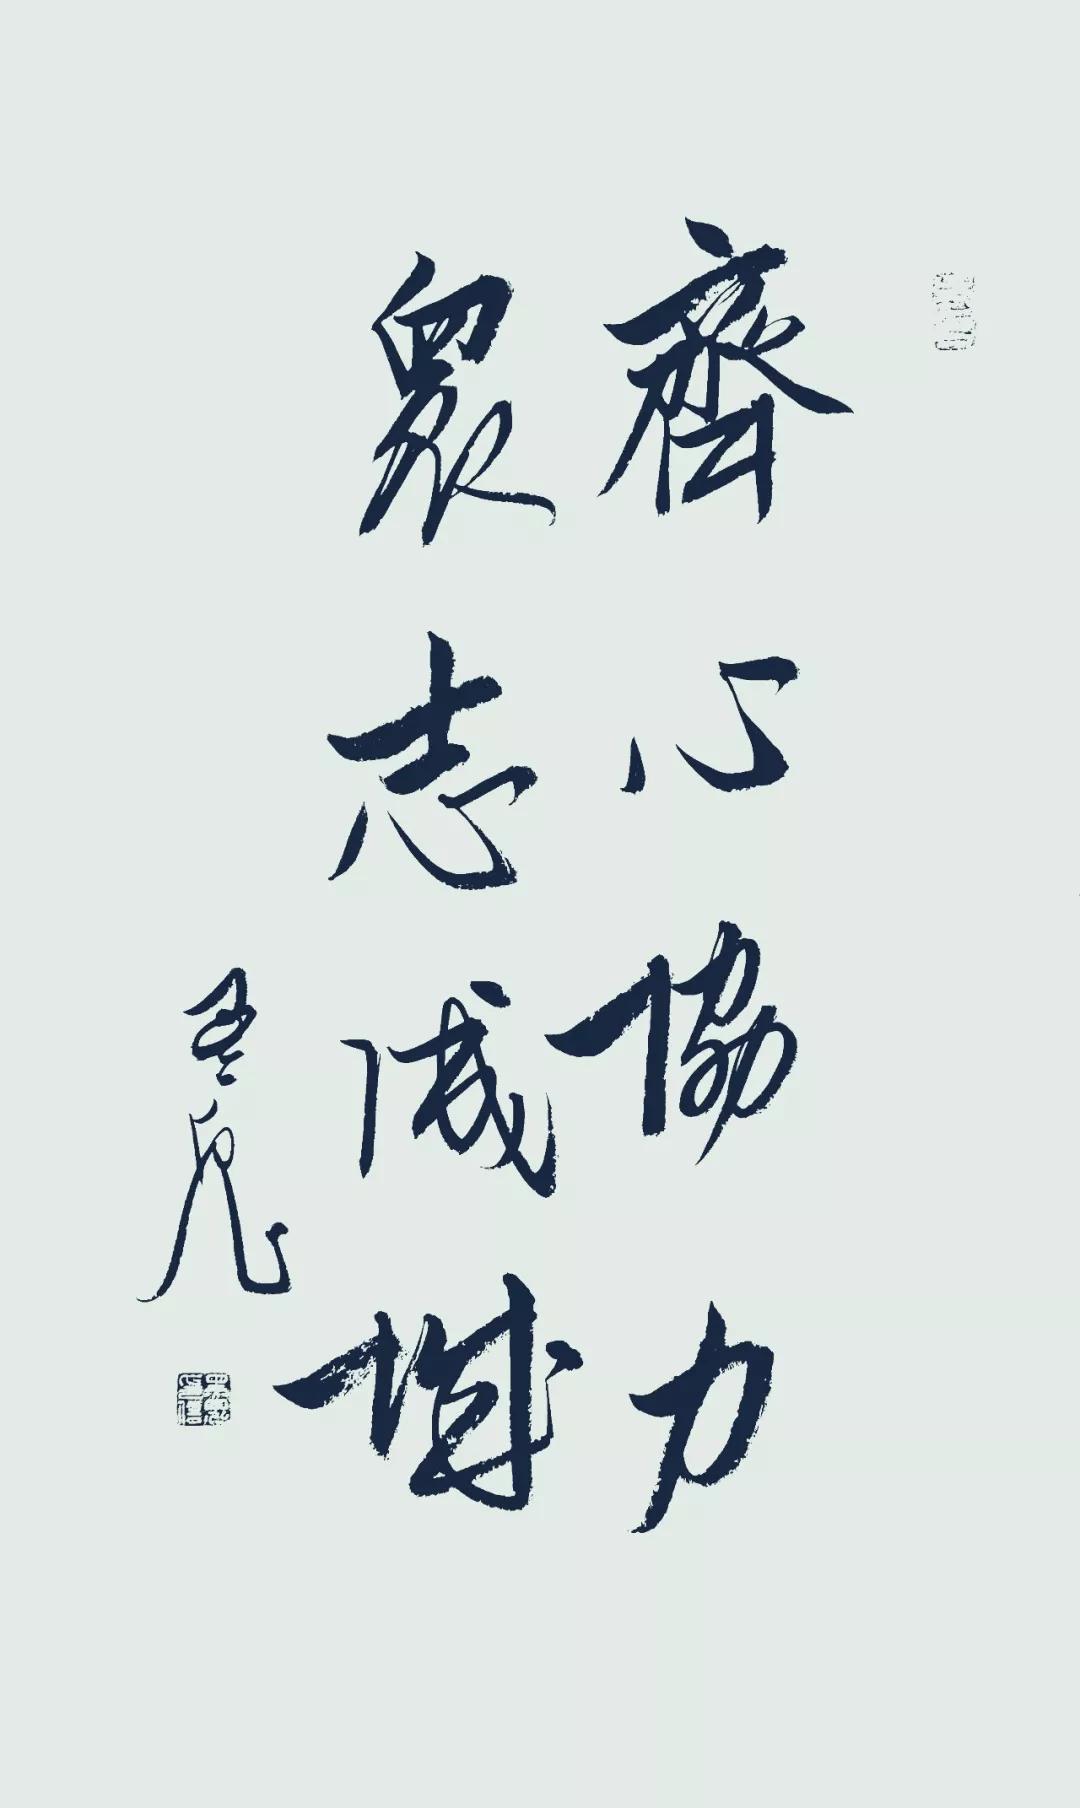 齊心協力
眾志成城